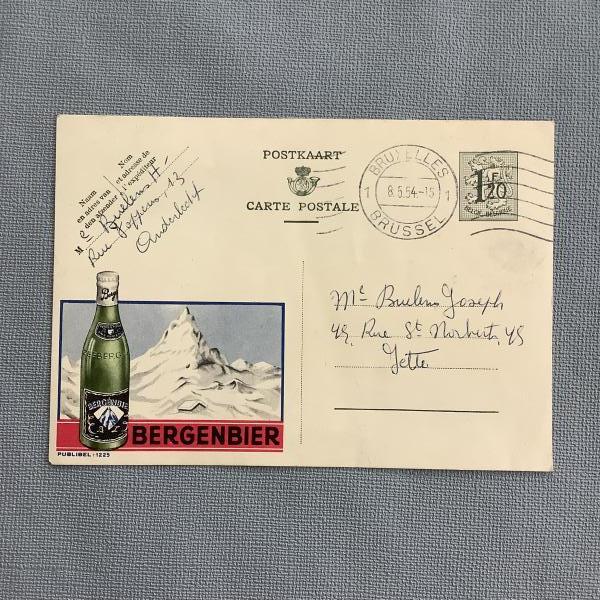 Naam
en adres van
den afzender
Nom
et adresse de
l'expéditeur
M
Buelens H.
Rue 13
Anderlecht
POSTKAART
CARTE POSTALE
BRUXELLES
1 8.5.54.-15 1
BRUSSEL
1F20
BELGIE-BELGIQUE
Mr Buelens Joseph
49, Rue St Norbert, 49
Jette
BERGENBIER
BERGENBIER
PUBLIBEL : 1225